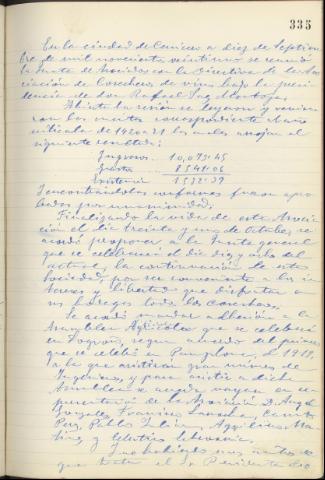 335
En la ciudad de Cenicero a diez de Septiem
bre de mil novecientos veintiuno se reunió
la Junta de Asociados con la Directiva de la Aso
ciación de Cosecheros de vino bajo la presi
dencia de don Rafael
Abierta la sesión se leyeron y
con las cuentas correspondientes al año
de 1920 a 21 las cuales arrojan el
siguiente resultado:
Ingresos 10,073'45
Gastos 8541'06
Existencia 1532'39
Y encontrándolas conformes fueron apro
badas por unanimidad.
Finalizando la vida de esta Asocia
ción el día treinta y uno de Octubre, se
acordó proponer a la Junta general
que se celebrará el día diez y ocho del
actual, la continuación de esta
Sociedad por ser conveniente a los in
tereses y libertad que disfrutan en
sus bodegas todos los Cosecheros.
Se acordó mandar adhesión a la
Asamblea Agrícola que se celebrará
en Logroño, según acuerdo del
que se celebró en Pamplona, el 1912,
a la que asistirán gran número de
Ingenieros, y para asistir a dicha
Asamblea se acuerda vayan en re
presentación de la Asociación D. Angel
Gonzalez, Francisco
Pablo
tinez y
Y no habiendo más asuntos de
que tratar el Sr. Presidente dió